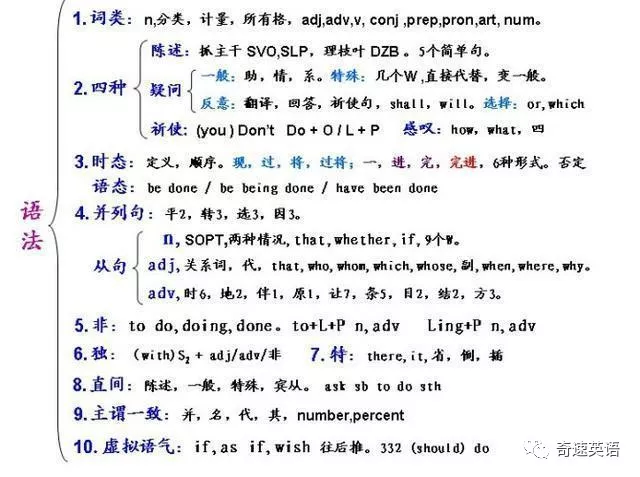 语法
1. 词类: n,分类, 计量, 所有格, adj,adv,v, conj ,prep,pron,art, num。
2. 四种
陈述: 抓主干 SVO,SLP, 理枝叶 DZB 。5个简单句。
疑问
一般: 助, 情, 系。特殊: 几个W,直接代替, 变一般。
反意: 翻译, 回答, 祈使句, shall, will。选择: or,which
祈使: (you ) Don't Do + O / L + P 感叹: how, what, 四
3. 时态: 定义, 顺序。现, 过, 将, 过将; 一, 进, 完, 完进, 6种形式。否定
语态: be done / be being done / have been done
4. 并列句: 平2, 转3, 选3, 因3。
从句
n, SOPT,两种情况, that,whether,if,9个W。
adj,关系词, 代, that,who,whom,which,whose,副,when,where,why。
adv,时6, 地2, 伴1, 原1, 让7, 条5, 目2, 结2, 方3。
5. 非: to do,doing,done。to+L+P n,adv Ling+P n,adv
6. 独: (with)S₂ + adj/adv/非 7. 特: there,it,省, 倒, 插
8. 直间: 陈述, 一般, 特殊, 宾从。ask sb to do sth
9. 主谓一致: 并, 名, 代, 其, number,percent
10. 虚拟语气: if,as if,wish 往后推。332 (should) do
奇速英语